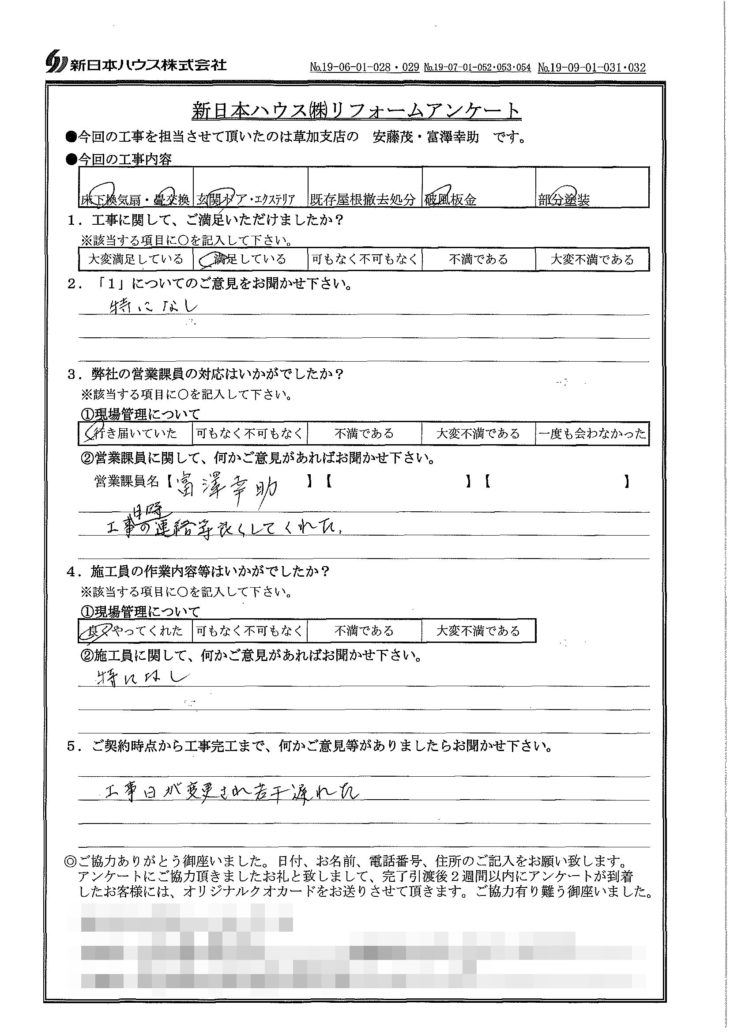 新日本ハウス株式会社
№19-06-01-028・029 №19-07-01-052・053・054 №19-09-01-031・032
新日本ハウス㈱リフォームアンケート
●今回の工事を担当させて頂いたのは草加支店の 安藤茂・富澤幸助 です。
●今回の工事内容
床下換気扇・畳交換 玄関ドア・エクステリア 既存屋根撤去処分 破風板金 部分塗装
1．工事に関して、ご満足いただけましたか？
※該当する項目に○を記入して下さい。
大変満足している 満足している 可もなく不可もなく 不満である 大変不満である
2．「1」についてのご意見をお聞かせ下さい。
特になし
3．弊社の営業課員の対応はいかがでしたか？
※該当する項目に○を記入して下さい。
①現場管理について
行き届いていた 可もなく不可もなく 不満である 大変不満である 一度も会わなかった
②営業課員に関して、何かご意見があればお聞かせ下さい。
営業課員名【富澤幸助 】【 】【 】
日時
工事の連絡等良くしてくれた。
4．施工員の作業内容等はいかがでしたか？
※該当する項目に○を記入して下さい。
①現場管理について
良くやってくれた 可もなく不可もなく 不満である 大変不満である
②施工員に関して、何かご意見があればお聞かせ下さい。
特になし
5．ご契約時点から工事完工まで、何かご意見等がありましたらお聞かせ下さい。
工事日が変更され若干遅れた
◎ご協力ありがとう御座いました。日付、お名前、電話番号、住所のご記入をお願い致します。
アンケートにご協力頂きましたお礼と致しまして、完了引渡後２週間以内にアンケートが到着
したお客様には、オリジナルクオカードをお送りさせて頂きます。ご協力有り難う御座いました。